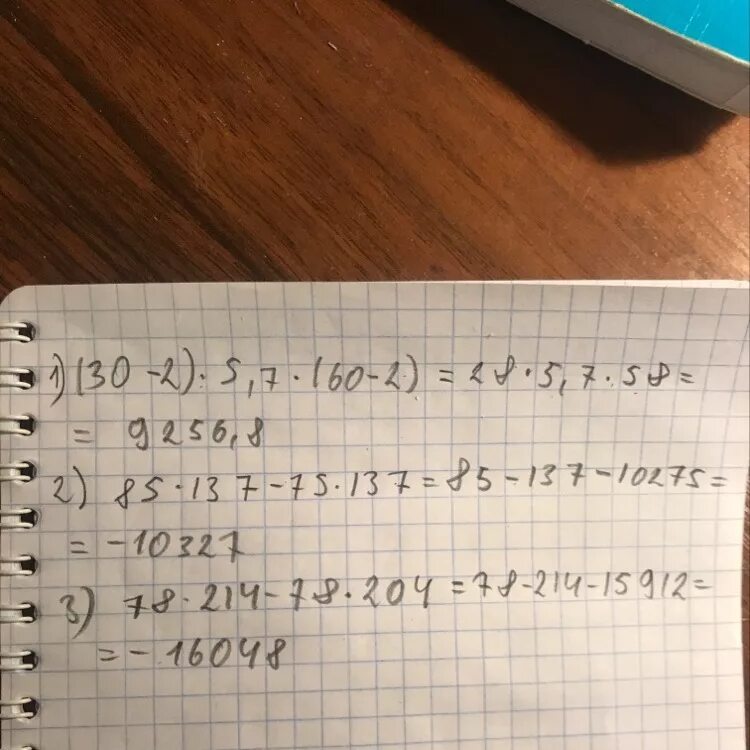 1) (30-2)·5,7·(60-2)=28·5,7·58=
= 9256,8
2) 85·137-75·137=85-137-10275=
= -10327
3) 78·214-78·204=78-214-15912=
= -16048